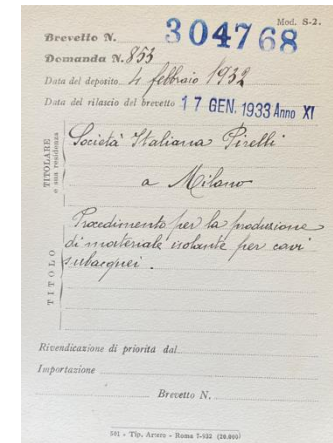 Mod. S-2.
Brevetto N. 304768
Domanda N. 853
Data del deposito 4 febbraio 1932
Data del rilascio del brevetto 17 GEN. 1933 Anno XI
TITOLARE
e sua residenza
Società Italiana Pirelli
a Milano
TITOLO
Procedimento per la produzione
di materiale isolante per cavi
subacquei.
Rivendicazione di priorità dal
Importazione
Brevetto N.
501 - Tip. Artero - Roma 7-932 (20.000)